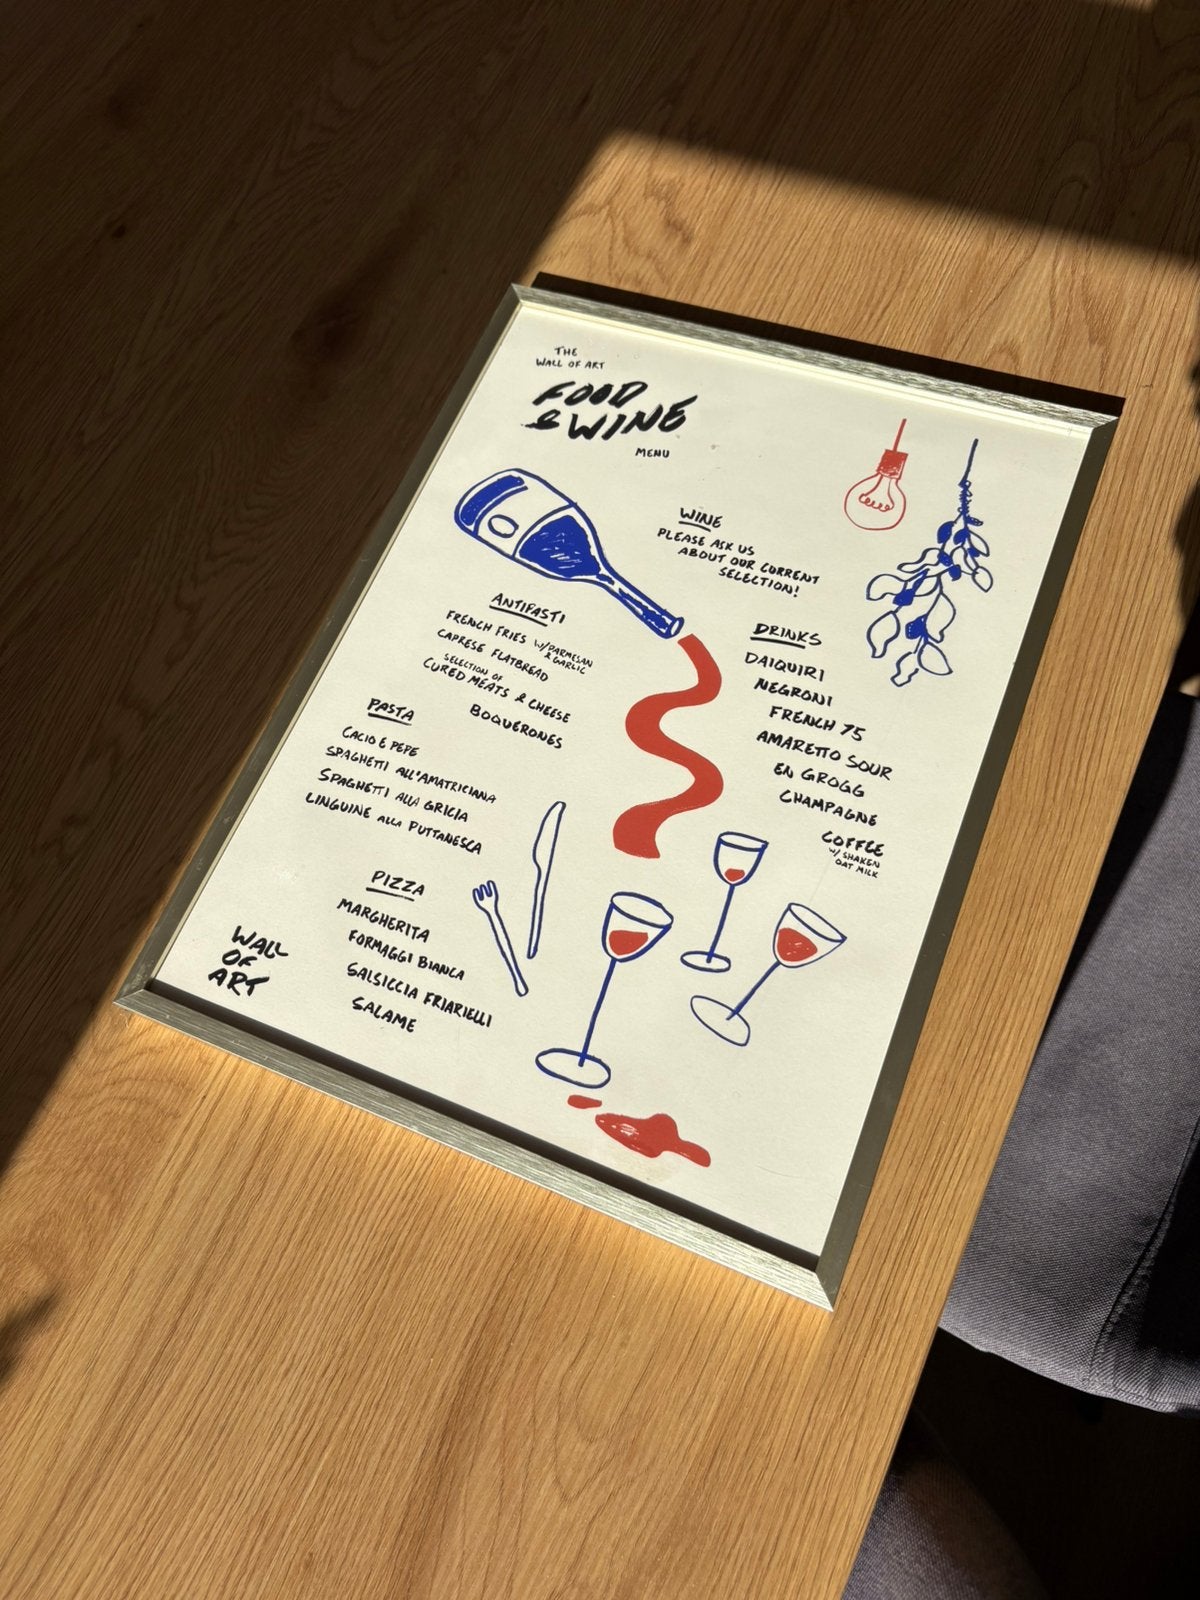 THE
WALL OF ART
FOOD
& WINE
MENU
WINE
PLEASE ASK US
ABOUT OUR CURRENT
SELECTION!
ANTIPASTI
FRENCH FRIES W/PARMESAN
& GARLIC
CAPRESE FLATBREAD
SELECTION OF
CURED MEATS & CHEESE
BOQUERONES
PASTA
CACIO E PEPE
SPAGHETTI ALL'AMATRICIANA
SPAGHETTI ALLA GRICIA
LINGUINE ALLA PUTTANESCA
PIZZA
MARGHERITA
FORMAGGI BIANCA
SALSICCIA FRIARIELLI
SALAME
DRINKS
DAIQUIRI
NEGRONI
FRENCH 75
AMARETTO SOUR
EN GROGG
CHAMPAGNE
COFFEE
W/ SHAKEN
OAT MILK
WALL
OF
ART